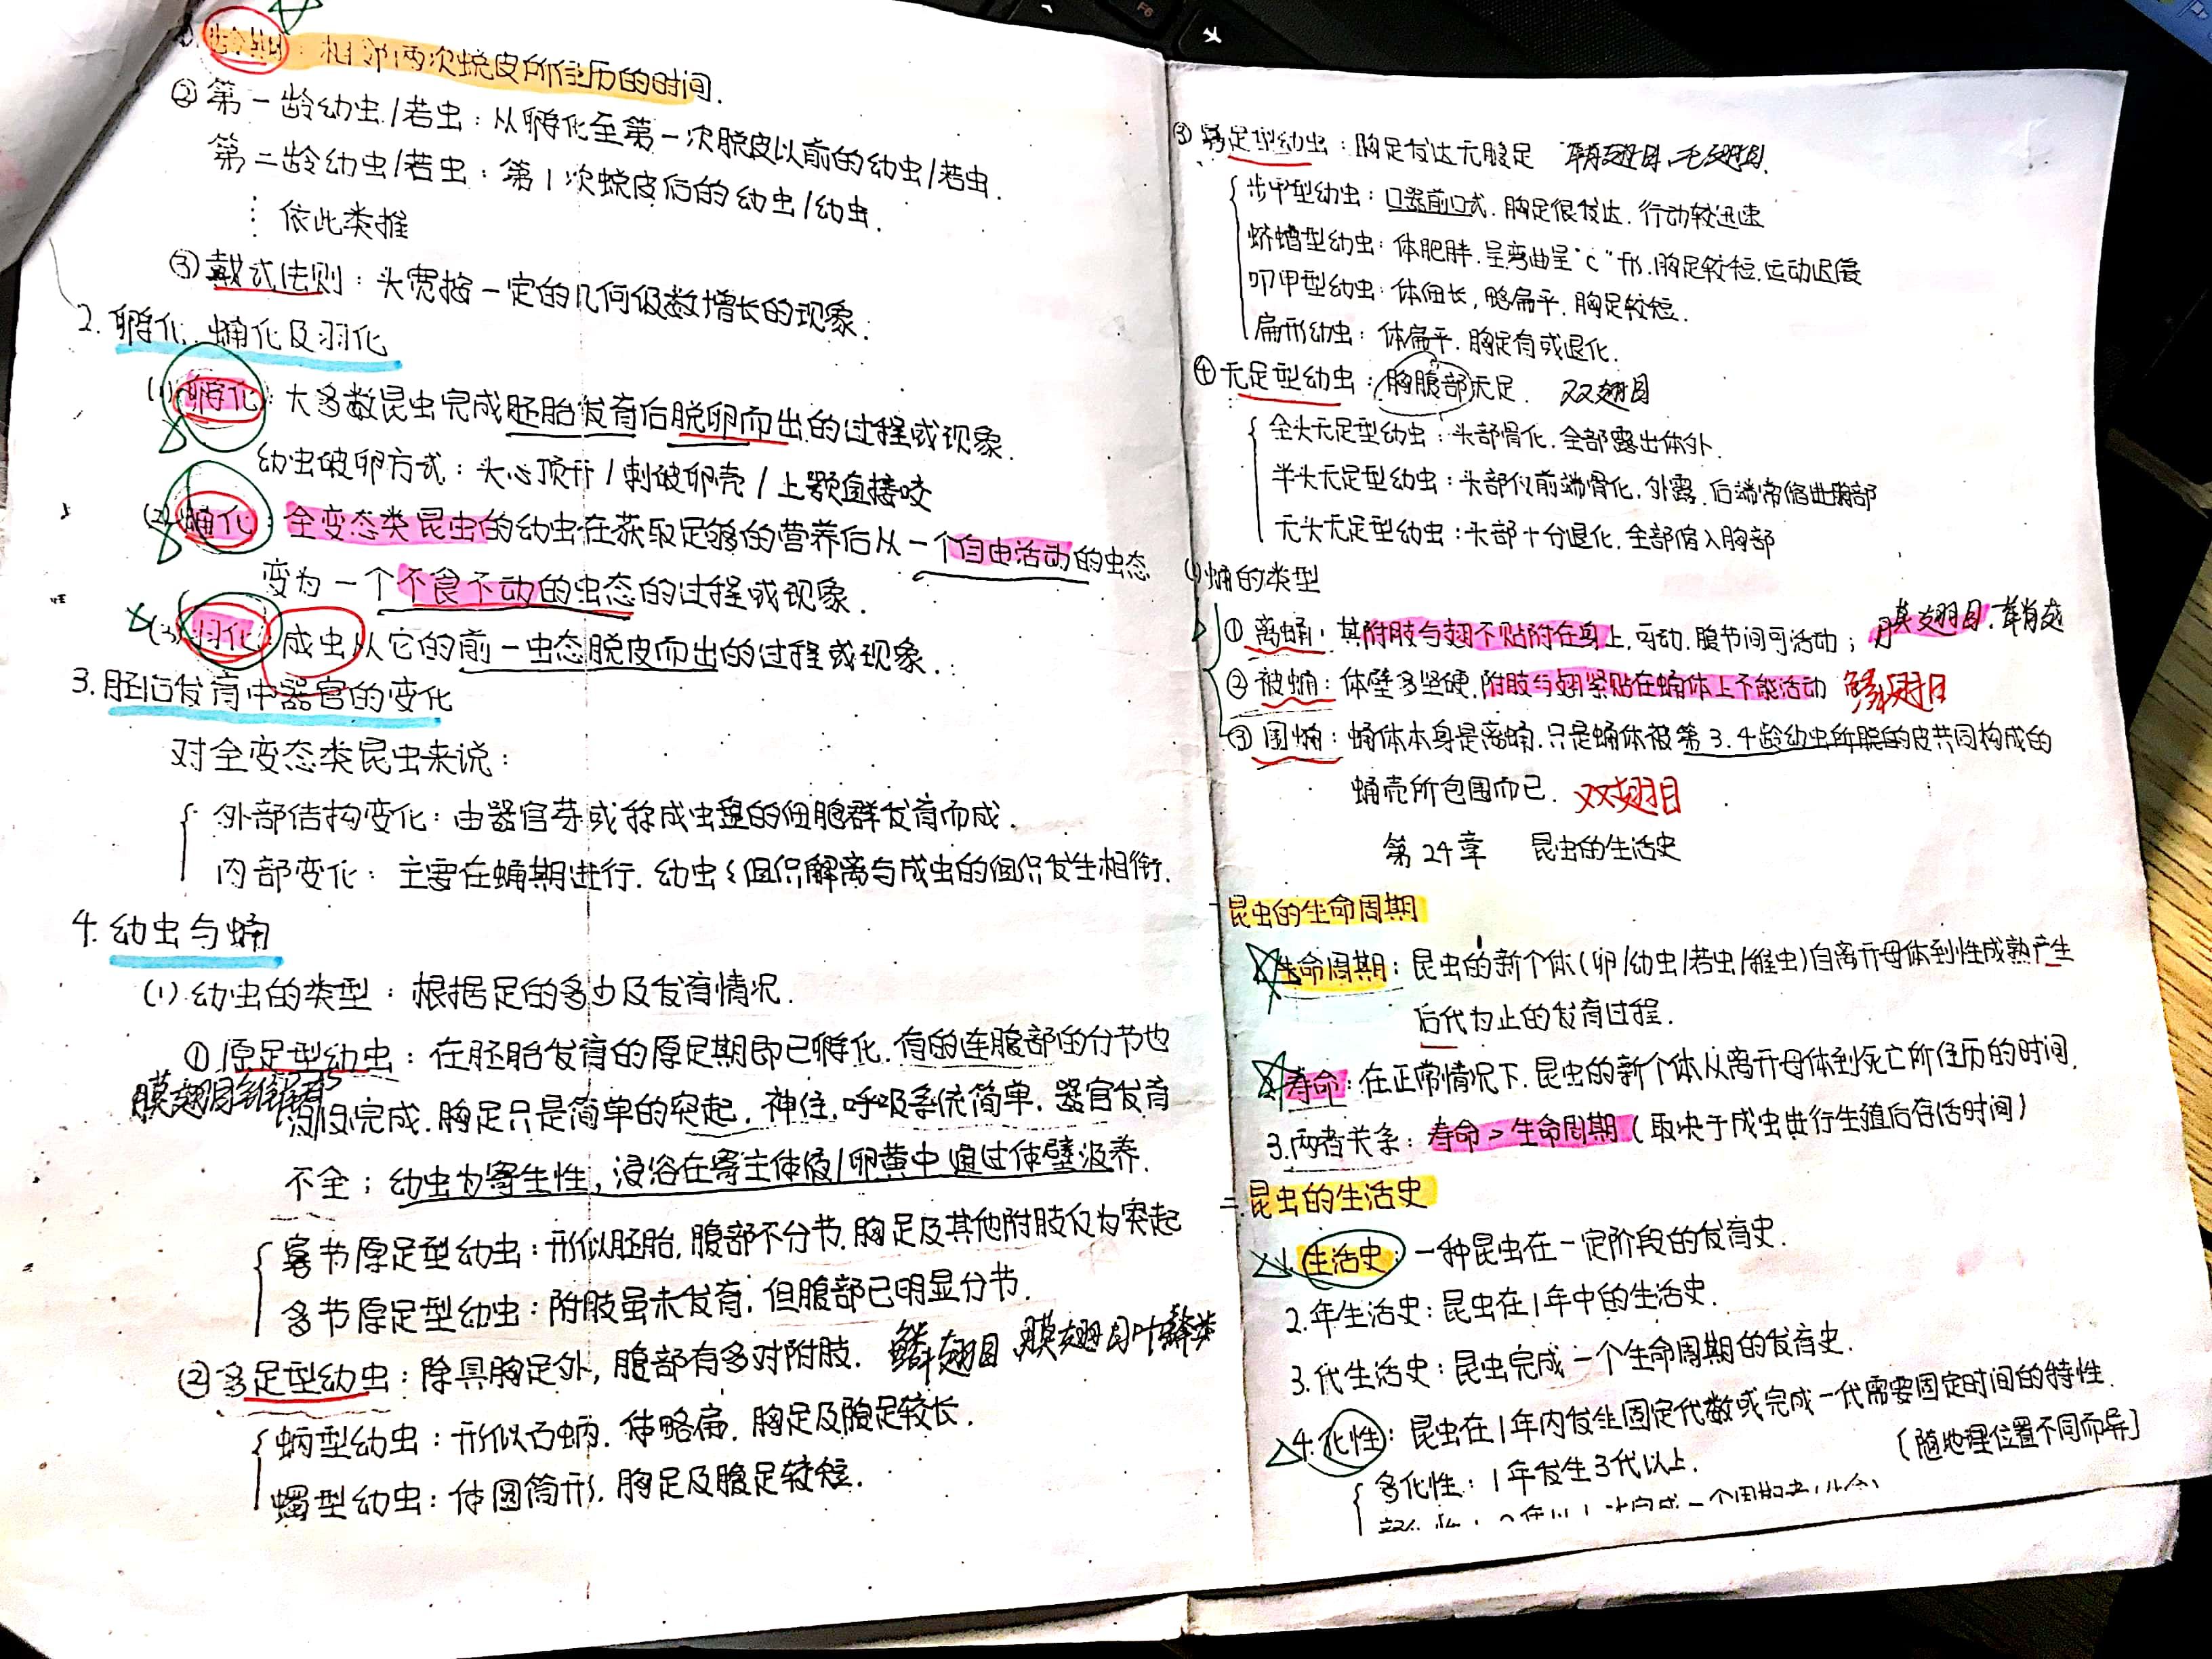 龄期：相邻两次蜕皮所经历的时间.
② 第一龄幼虫/若虫：从孵化至第一次脱皮以前的幼虫/若虫.
第二龄幼虫/若虫：第1次蜕皮后的幼虫/幼虫.
⋮ 依此类推
③ 戴式法则：头宽按一定的几何级数增长的现象.
2. 孵化、蛹化及羽化
(1) 孵化：大多数昆虫完成胚胎发育后脱卵而出的过程或现象.
幼虫破卵方式：头心顶开/刺破卵壳/上颚直接咬
(2) 蛹化：全变态类昆虫的幼虫在获取足够的营养后从一个自由活动的虫态
变为一个不食不动的虫态的过程或现象.
(3) 羽化：成虫从它的前一虫态脱皮而出的过程或现象.
3. 胚后发育中器官的变化
对全变态类昆虫来说：
外部结构变化：由器官芽或称成虫盘的细胞群发育而成.
内部变化：主要在蛹期进行. 幼虫组织解离与成虫的组织发生相衔.
4. 幼虫与蛹
(1) 幼虫的类型：根据足的多少及发育情况.
① 原足型幼虫：在胚胎发育的原足期即已孵化. 有的连腹部的分节也
膜翅目
完成. 胸足只是简单的突起, 神经. 呼吸系统简单. 器官发育
不全；幼虫为寄生性, 浸浴在寄主体液/卵黄中通过体壁汲养.
寡节原足型幼虫：形似胚胎, 腹部不分节. 胸足及其他附肢仅为突起
多节原足型幼虫：附肢虽未发育, 但腹部已明显分节.
② 多足型幼虫：除具胸足外, 腹部有多对附肢. 鳞翅目、膜翅目叶蜂类
蚋型幼虫：形似石蚋. 体略扁. 胸足及腹足较长.
蠋型幼虫：体圆筒形. 胸足及腹足较短.
③ 寡足型幼虫：胸足发达无腹足 鞘翅目、毛翅目.
步甲型幼虫：口器前口式. 胸足很发达. 行动较迅速
蛴螬型幼虫：体肥胖. 呈弯曲呈"C"形. 胸足较短. 运动迟缓
叩甲型幼虫：体细长, 略扁平. 胸足较短.
扁形幼虫：体扁平. 胸足有或退化.
④ 无足型幼虫：胸腹部无足. 双翅目
全头无足型幼虫：头部骨化. 全部露出体外.
半头无足型幼虫：头部仅前端骨化, 外露. 后端常缩进胸部
无头无足型幼虫：头部十分退化. 全部缩入胸部
蛹的类型
① 离蛹：其附肢与翅不贴附在身上, 可动. 腹节间可活动； 膜翅目. 鞘翅
② 被蛹：体壁多坚硬, 附肢与翅紧贴在蛹体上不能活动 鳞翅目
③ 围蛹：蛹体本身是离蛹. 只是蛹体被第3.4龄幼虫所脱的皮共同构成的
蛹壳所包围而已. 双翅目
第24章 昆虫的生活史
一 昆虫的生命周期
生命周期：昆虫的新个体(卵/幼虫/若虫/稚虫)自离开母体到性成熟产生
后代为止的发育过程.
2. 寿命：在正常情况下. 昆虫的新个体从离开母体到死亡所经历的时间.
3. 两者关系：寿命>生命周期(取决于成虫进行生殖后存活时间)
二 昆虫的生活史
1. 生活史：一种昆虫在一定阶段的发育史.
2. 年生活史：昆虫在1年中的生活史.
3. 代生活史：昆虫完成一个生命周期的发育史.
4. 化性：昆虫在1年内发生固定代数或完成一代需要固定时间的特性.
(随地理位置不同而异)
多化性：1年发生3代以上.